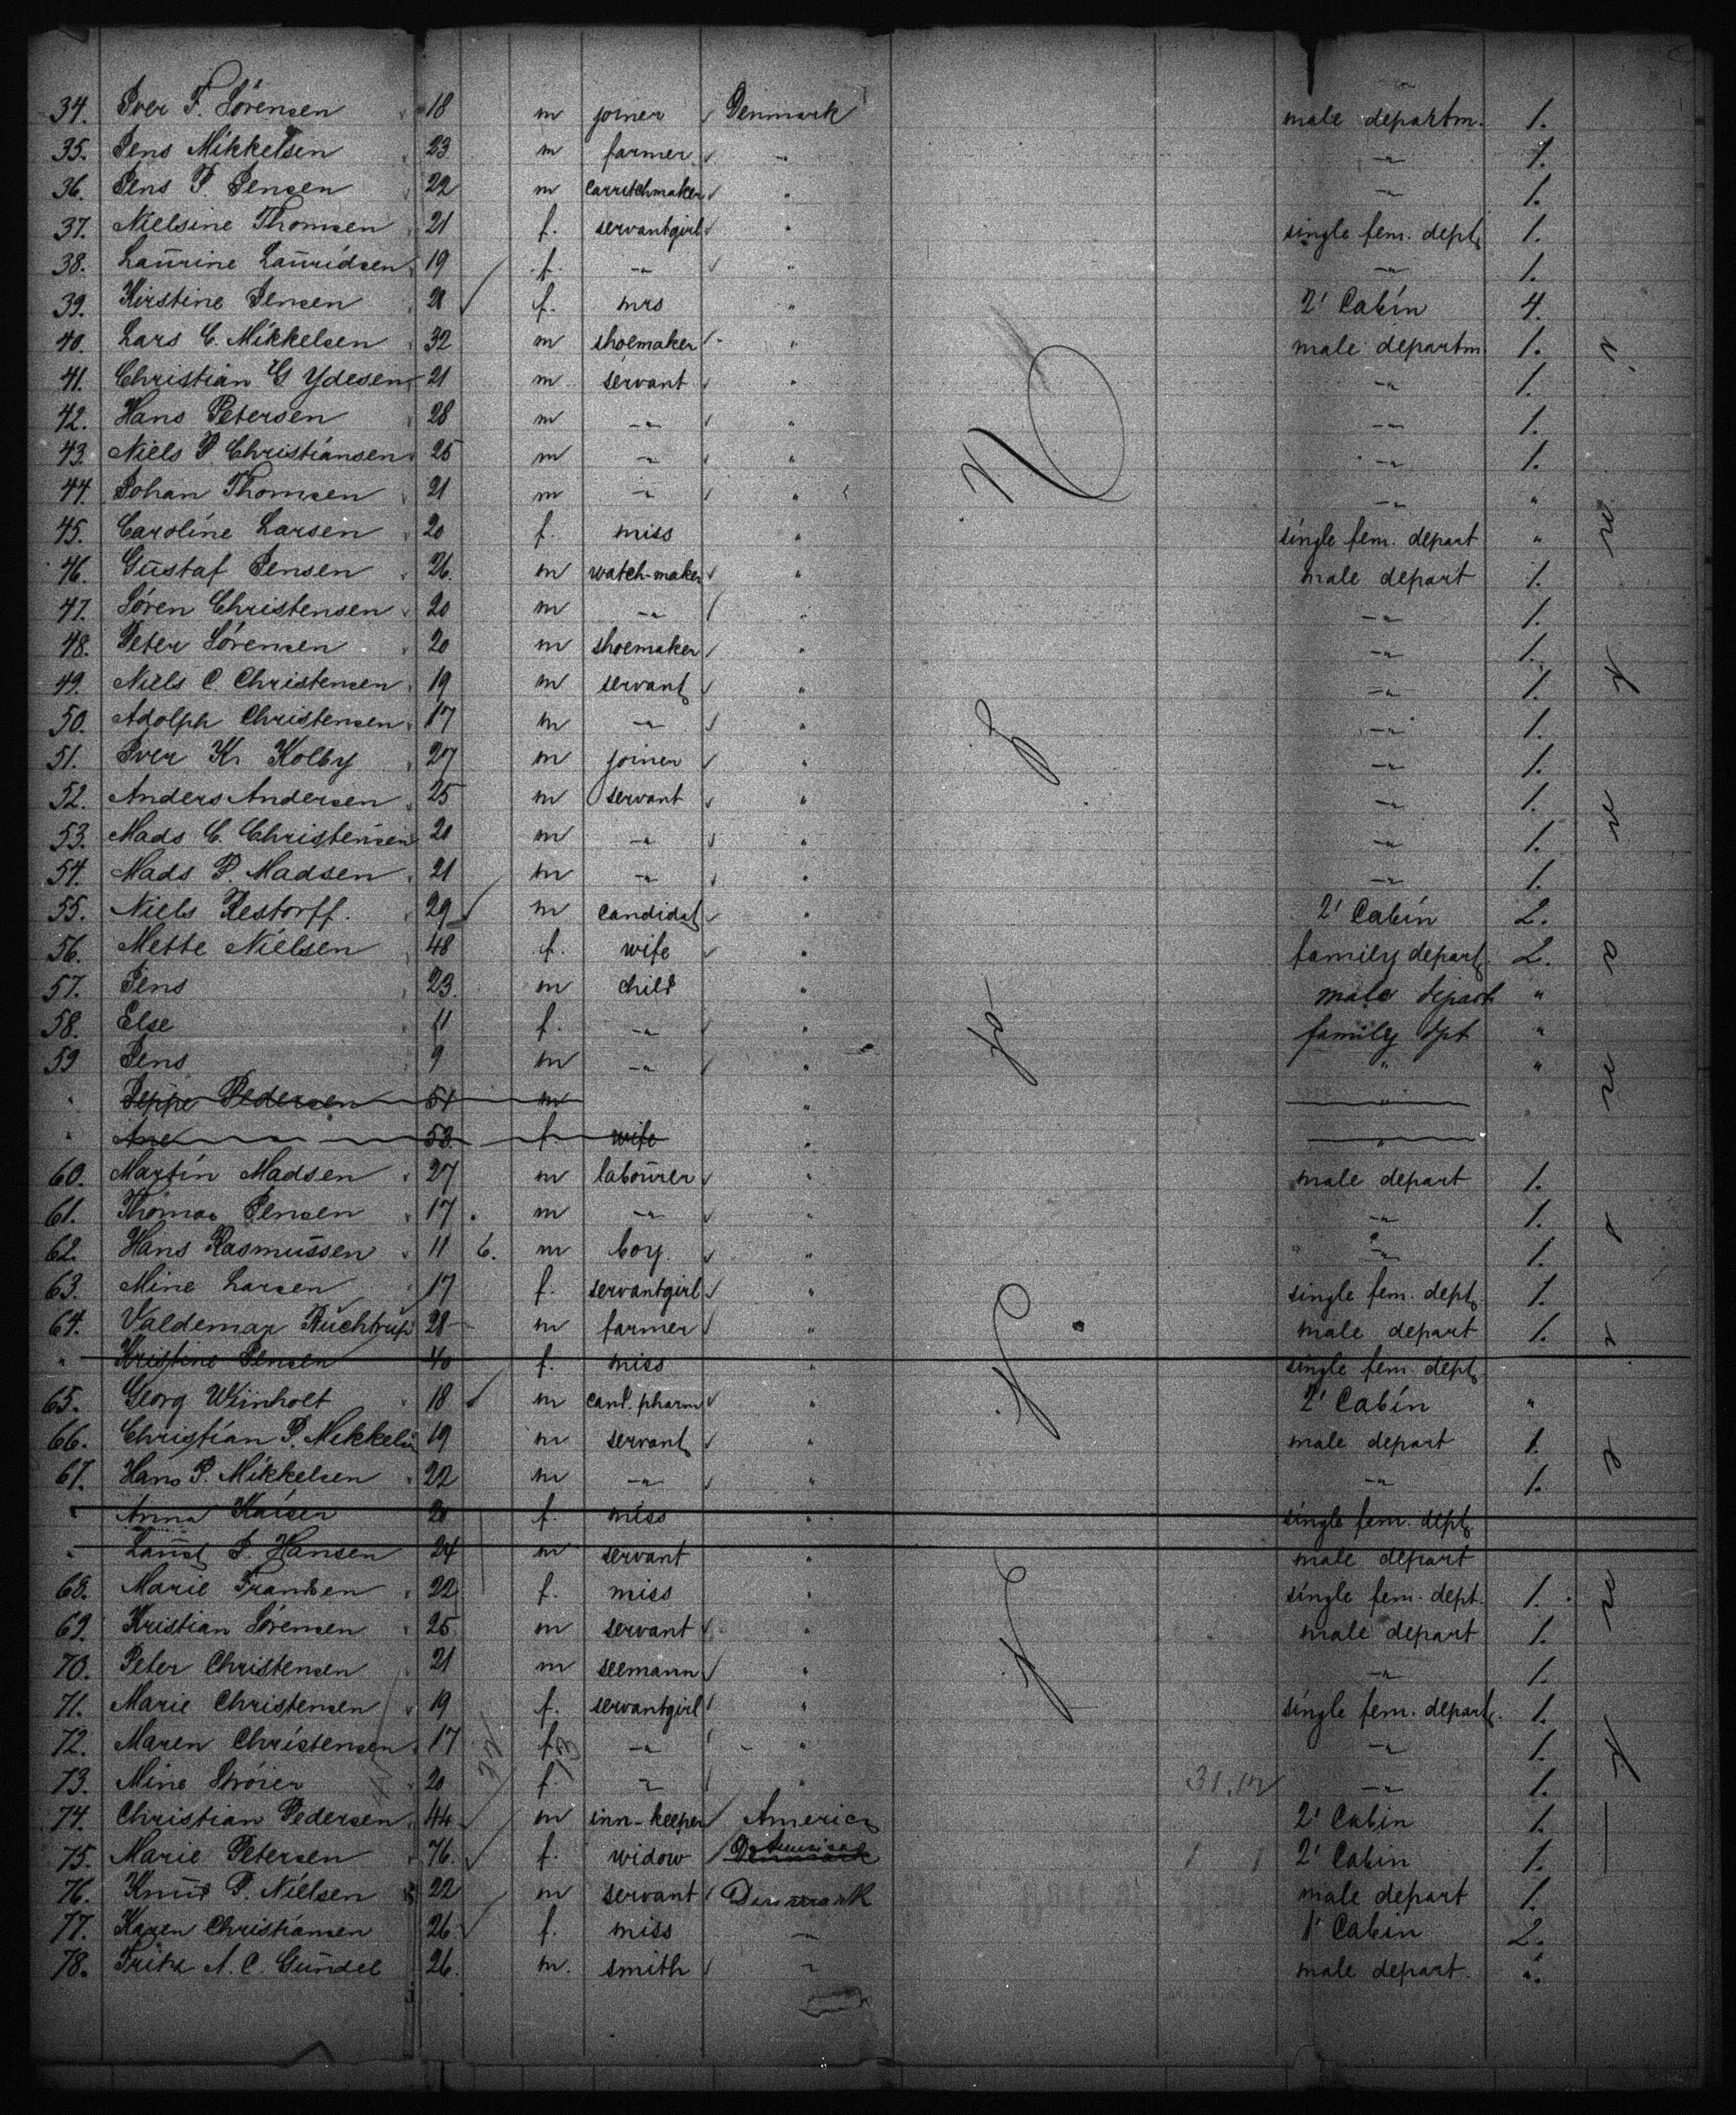 34. Iver F. Sörensen 18 m joiner Denmark male departm. 1.
35. Jens Mikkelsen 23 m farmer " -"- 1.
36. Jens P. Jensen 22 m carritchmaker " -"- 1.
37. Nielsine Thomsen 21 f. servantgirl " single fem. dept. 1.
38. Laurine Lauridsen 19 f. -"- " -"- 1.
39. Kirstine Jensen f. mrs " 2' Cabin 4.
40. Lars C. Mikkelsen 32 m shoemaker " male departm. 1.
41. Christian G Ydesen 21 m servant " -"- 1.
42. Hans Petersen 28 m -"- " -"- 1.
43. Niels P. Christiansen 25 m -"- " -"- 1.
44. Johan Thomsen 21 m -"- " -"- "
45. Caroline Larsen 20 f. miss " single fem. depart "
46. Gustaf Jensen 26. m watch-maker " male depart 1.
47. Sören Christensen 20 m -"- " -"- 1.
48. Peter Sörensen 20 m shoemaker " -"- 1.
49. Niels C. Christensen 19 m servant " -"- 1.
50. Adolph Christensen 17 m -"- " -"- 1.
51. Iver Kr Kolby 27 m joiner " -"- 1.
52. Anders Andersen 25 m servant " -"- 1.
53. Mads C. Christensen 20 m -"- " -"- 1.
54. Mads P. Madsen 21 m -"- " -"- 1.
55. Niels Restorff. 29 m candidat " 2' Cabin 2.
56. Mette Nielsen 48 f. wife " family depart. 2.
57. Jens 23. m child " male depart "
58. Else 11 f. -"- " family dpt "
59 Jens 9 m -"- " " "
" Jeppe Pedersen 51 m " "
" Ane 53. f. wife " "
60. Martin Madsen 27 m labourer " male depart 1.
61. Thomas Jensen 17 m -"- " -"- 1.
62. Hans Rasmussen 11 6. m boy. " -"- 1.
63. Mine Larsen 17 f. servantgirl " single fem. dept. 1.
64. Valdemar 28 m farmer " male depart 1.
" Kristine Jensen 40 f. miss " single fem. dept.
65. Georg Wiinholt 18 m cand. pharm " 2' Cabin "
66. Christian P. Mikkelsen 19 m servant " male depart 1.
67. Hans P. Mikkelsen 22 m -"- " -"- 1.
" Anna Kaiser 20 f. miss " single fem. dept.
" P. Hansen 24 m servant " male depart
68. Marie Frandsen 22 f. miss " single fem. dept. 1.
69. Kristian Sörensen 25 m servant " male depart 1.
70. Peter Christensen 21 m seemann " -"- 1.
71. Marie Christensen 19 f. servantgirl " single fem. depart. 1.
72. Maren Christensen 17 f. -"- " -"- 1.
73. Mine Ströier 20 f. " " 31.12 -"- 1.
74. Christian Pedersen 44 m inn-keeper America 2' Cabin 1.
75. Marie Petersen 76. f. widow Denmark America 2' Cabin 1.
76. Knud P. Nielsen 22 m servant Denmark male depart 1.
77. Karen Christiansen 26 f. miss -"- 1' Cabin 2.
78. Fritz A. C. Gundel 26. m. smith " male depart. "